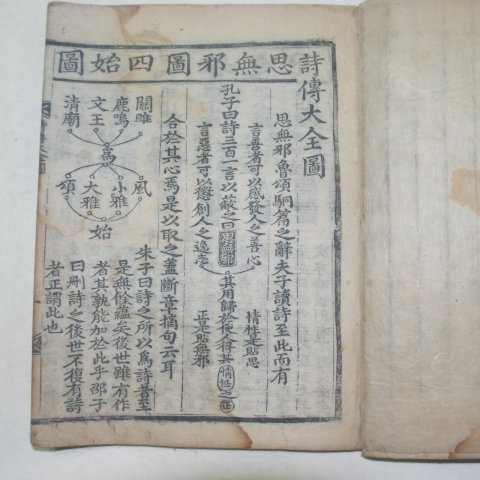 詩傳大全圖
思無邪圖
思無邪魯頌駉篇之辭夫子讀詩至此而有
合於其心焉是以取之蓋斷章摘句云耳
孔子曰詩三百一言以蔽之曰思無邪
言善者可以感發人之善心
言惡者可以懲創人之逸志
其用歸於使人得其情性之正
情性是貼思
正是貼無邪
四始圖
關雎
鹿鳴
文王
清廟
爲
風
小雅
大雅
頌
始
朱子曰詩之所以爲詩者至
是無餘蘊矣後世雖有作
者其孰能加於此乎邵子
曰刪詩之後世不復有詩
者正謂此也